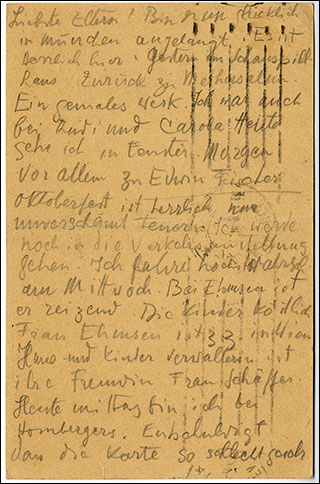 Liebste Eltern! Bin nun glücklich
in München angelangt. Es ist
herrlich hier. Gestern im Schauspiel-
haus Zurück zu Methusalem.
Ein geniales Werk. Ich war auch
bei Rudi und Carola Heute
gehe ich in Fenster Morgen
vor allem zu Edwin Fischer
Oktoberfest ist herrlich nur
unverschämt teuer. Ich werde
noch in die Verkehrsausstellung
gehen. Ich fahre
am Mittwoch. Bei Ehmsen ist
er reizend. Die Kinder köstlich
Frau Ehmsen ist zz in Wien
Haus und Kinder verwalterin ist
ihre Freundin Frau Schäffer.
Heute mittag bin ich bei
Hombergers. Entschuldigt
dan die Karte so schlecht geschr